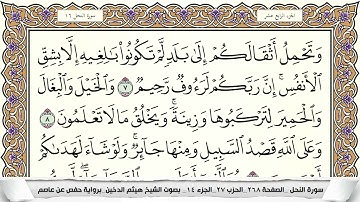 الجزء الرابع عشر
سورة النحل ١٦
وَتَحْمِلُ أَثْقَالَكُمْ إِلَىٰ بَلَدٍ لَّمْ تَكُونُوا۟ بَٰلِغِيهِ إِلَّا بِشِقِّ
ٱلْأَنفُسِ ۚ إِنَّ رَبَّكُمْ لَرَءُوفٌ رَّحِيمٌ ٧ وَٱلْخَيْلَ وَٱلْبِغَالَ
وَٱلْحَمِيرَ لِتَرْكَبُوهَا وَزِينَةً ۚ وَيَخْلُقُ مَا لَا تَعْلَمُونَ ٨
وَعَلَى ٱللَّهِ قَصْدُ ٱلسَّبِيلِ وَمِنْهَا جَآئِرٌ ۚ وَلَوْ شَآءَ لَهَدَىٰكُمْ
سورة النحل _ الصفحة ٢٦٨ _ الحزب ٢٧ _ الجزء ١٤ _ بصوت الشيخ هيثم الدخين _ برواية حفص عن عاصم